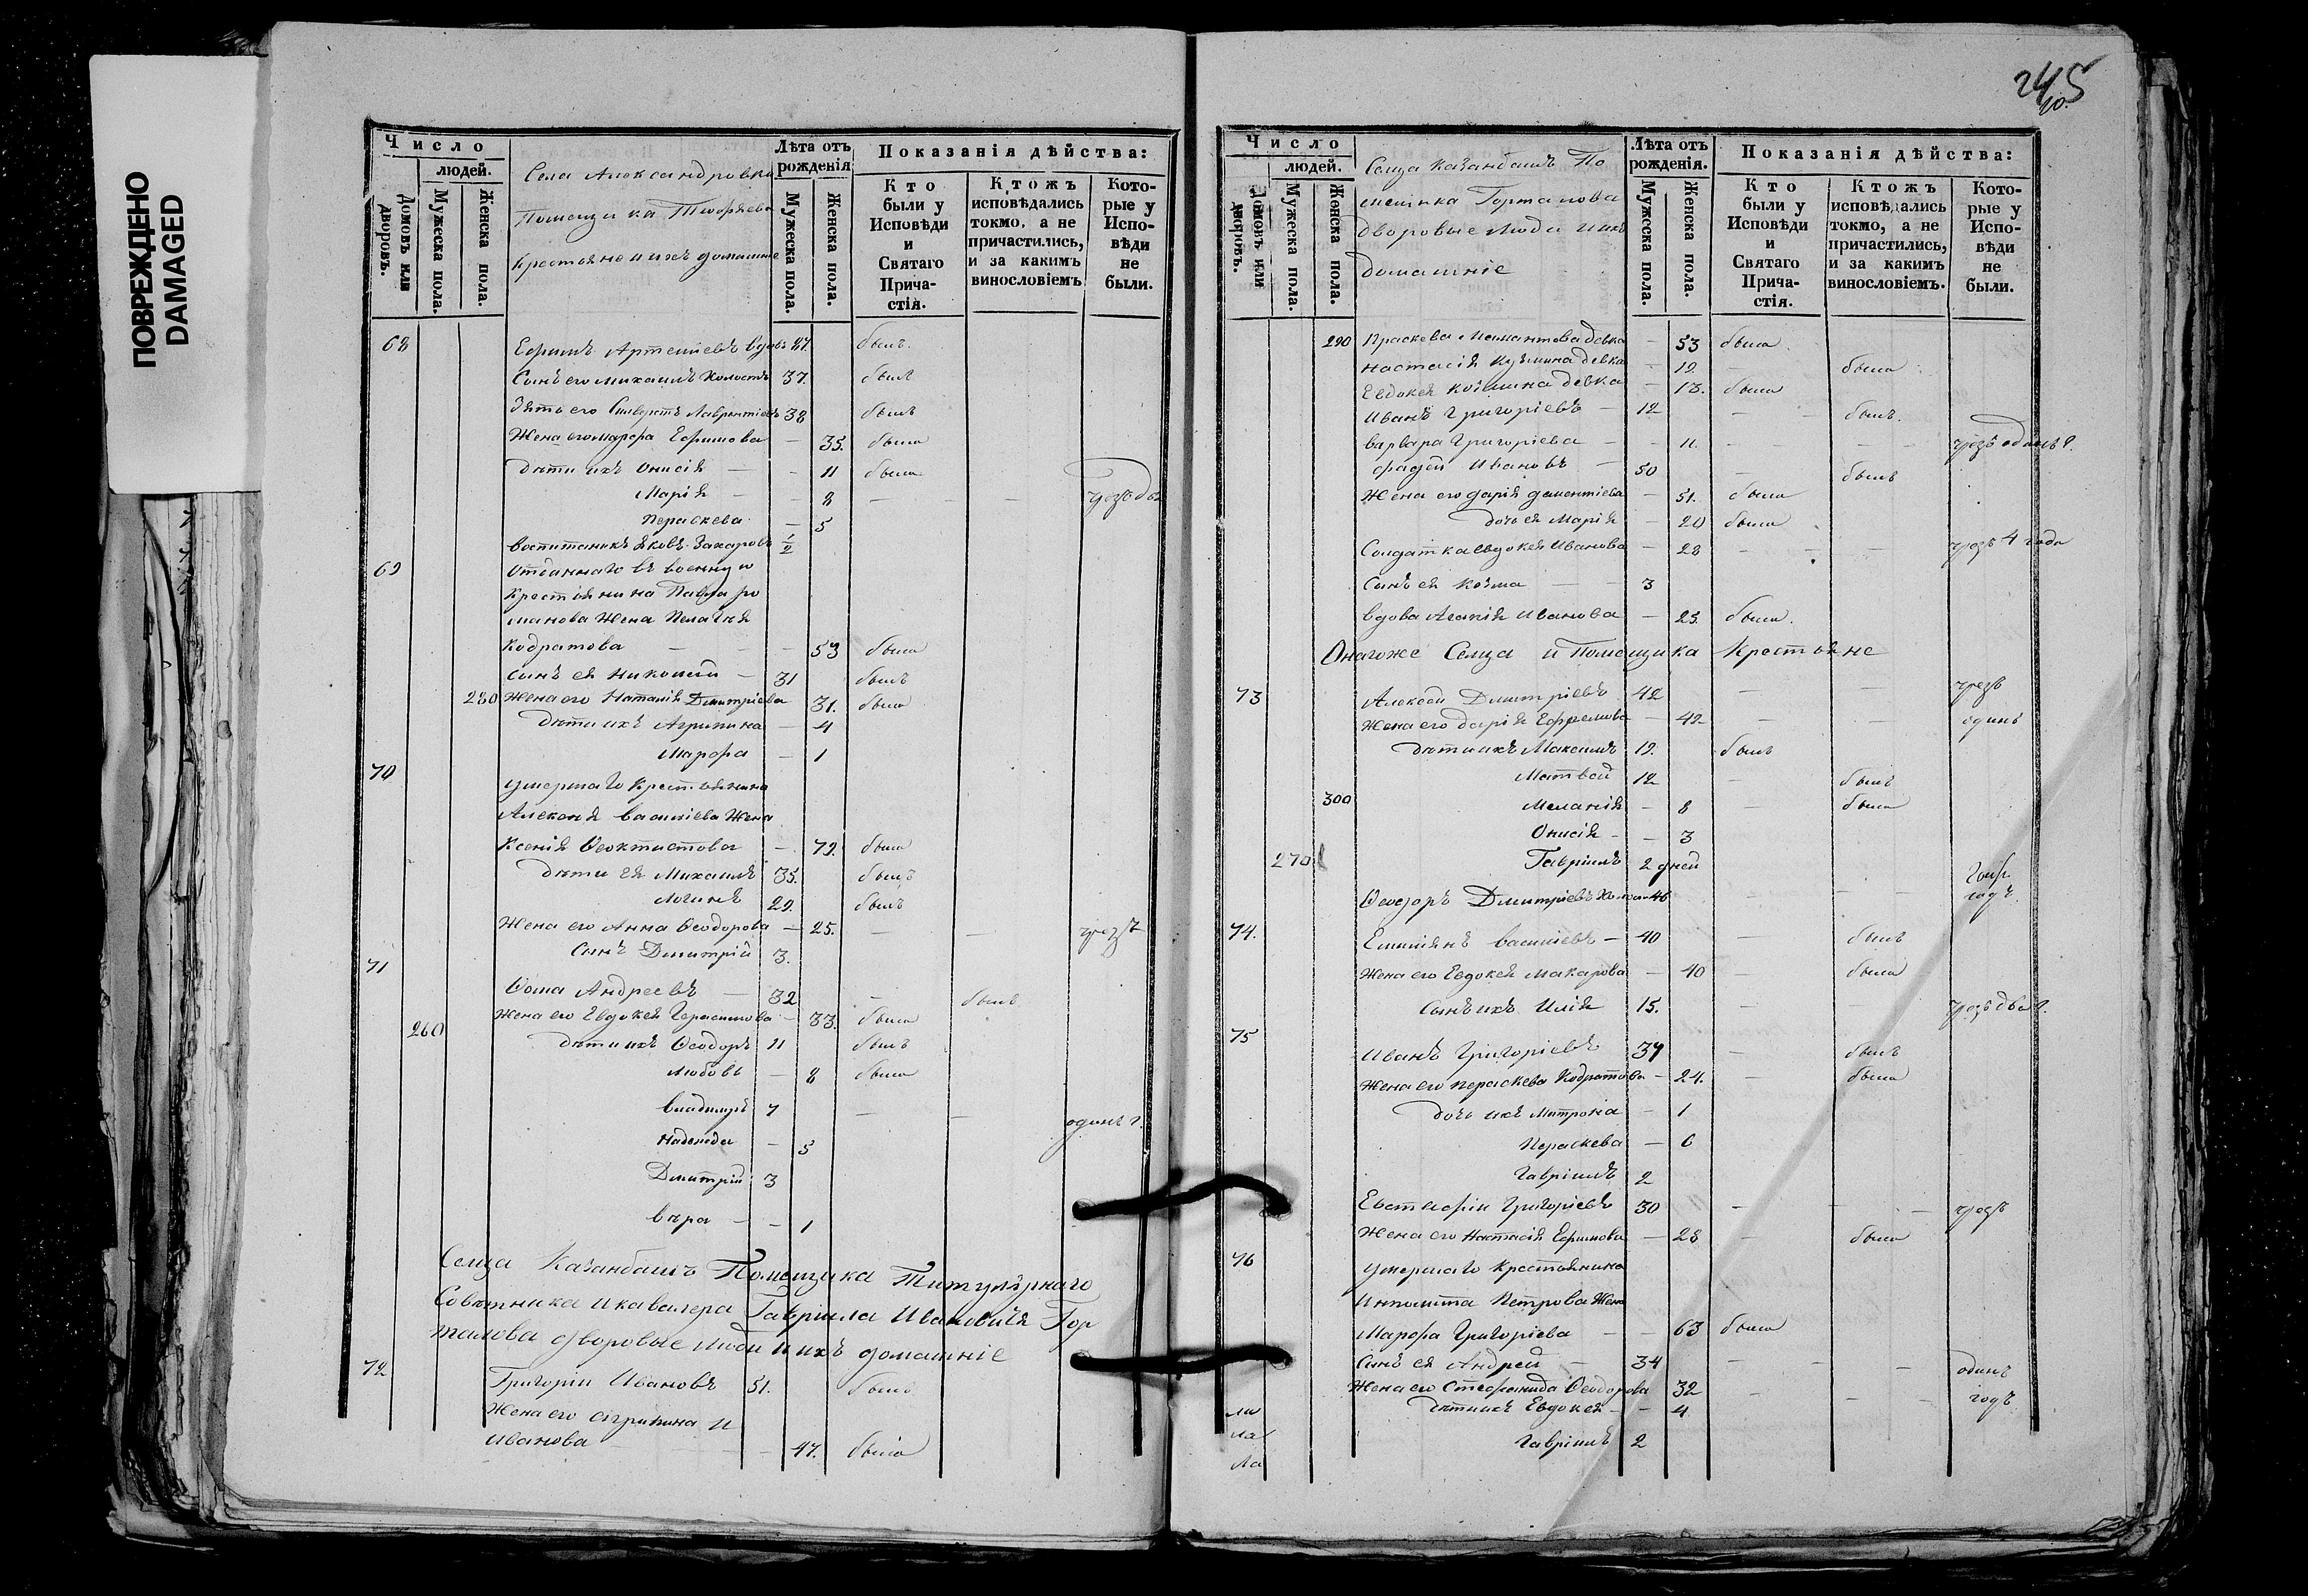 ПОВРЕЖДЕНО
DAMAGED
Число
людей.
Домовъ или дворовъ.
Мужеска пола.
Женска пола.
Села Александровка
Помещика
Крестьяне и ихъ домашние
Лѣта отъ рожденія
Мужеска пола.
Женска пола.
Показанія дѣйства:
Кто были у Исповѣди и Святаго Причастія.
Ктожъ исповѣдались токмо, а не причастились, и за какимъ винословіемъ
Которые у Исповѣди не были.
68 Ефимъ Артемiевъ вдовъ былъ.
Сынъ его Михаилъ холостъ 37. былъ
Зять его Лаврентiевъ 38 былъ
Жена его Марфа Ефимова — 35. была
дѣти ихъ Онисiя — — 11 была
Марiя — — 8 — —
Пераскева — 5
воспитаникъ Яковъ Захаровъ 1/2
69 Отданнаго въ военную
крестьянина Павла Ро
манова жена Пелагѣя
Кодратова — — — 53 была
сынъ ея Николай — 31 былъ
280 Жена его Наталiя Дмитрiева 31. была
дѣти ихъ Агрипина — 4
Марфа — 1
70
умершаго крестьянина
Алексѣя Василiева жена
Ксенiя Ѳеоктистова — 72. была
дѣти ея Михаилъ 35. былъ
Логинъ 29. былъ
Жена его Анна Ѳеодорова — 25. — — чрезъ
сынъ Дмитрiй 3.
71
Ѳома Андреевъ — 32 — былъ
Жена его Евдокея Герасимова — 33. была
260 дѣти ихъ Ѳеодоръ 11 былъ
Любовь — 8 была
Владимiръ 7 — — одинъ г.
Надежда — 5
Дмитрiй 3
Вѣра — — 1
Сельца Казанбашъ Помещика Титулярнаго
Совѣтника и кавалера Гаврiила Ивановича Гор
талова дворовые люди и ихъ домашнiе
72 Григорiй Ивановъ 51. былъ
Жена его Агрипина И
Иванова — — 47. была
245
Число
людей.
Домовъ или дворовъ.
Мужеска пола.
Женска пола.
Сельца Казанбашъ По
мещика Горталова
дворовые люди и ихъ
домашнiе
Лѣта отъ рожденія.
Мужеска пола.
Женска пола.
Показанія дѣйства:
Кто были у Исповѣди и Святаго Причастія.
Ктожъ исповѣдались токмо, а не причастились, и за какимъ винословіемъ.
Которые у Исповѣди не были.
290 Праскева девка — 53 была
Настасiя Кузмина девка — 19. — была
Евдокея Козмина девка — 13. была
Иванъ Григорiевъ — 12 — — былъ.
Варвара Григорiева — — 11. — — — чрезъ одинъ г.
Фадѣй Ивановъ — 50 — былъ
Жена его Дарiя Дементiева — 51. была
дочь ея Марiя — 20 была
Солдатка Евдокея Иванова — 28 — — — чрезъ 4 года
сынъ ея Козма — — 3
вдова Агапiя Иванова — 25. была.
Онагоже Сельца и Помещика Крестьяне
73 Алексѣй Дмитрiевъ 42 — — чрезъ
Жена его Дарiя Ефремова — 42 — — одинъ
дѣти ихъ Максимъ 19. былъ
Матвей 12 — былъ
300 Меланiя — 8 — была
Онисiя — — 3
270 Гаврiилъ 2 дней
Ѳеодоръ Дмитрiевъ 46 — — — годъ.
74. Емилiянъ Василiевъ — 40 — былъ
Жена его Евдокея Макарова — 40 — была
сынъ ихъ Илiя 15. — — чрезъ два г.
75
Иванъ Григорiевъ 34 — былъ
Жена его Пераскева Кодратова — 24. — была
дочь ихъ Матрона — 1
Пераскева — 6
Гаврiилъ 2
Евстафiй Григорiевъ 30 — — — чрезъ
Жена его Настасiя Ефимова — 28 — была
76
умершаго крестьянина
Ипполита Петрова жена
Марфа Григорiева — — 63 была
сынъ ея Андрей — 34 — — — одинъ
Жена его Стефанида Ѳеодорова 32 — — — годъ
дѣти ихъ Евдокея — — 4
Гаврiилъ 2